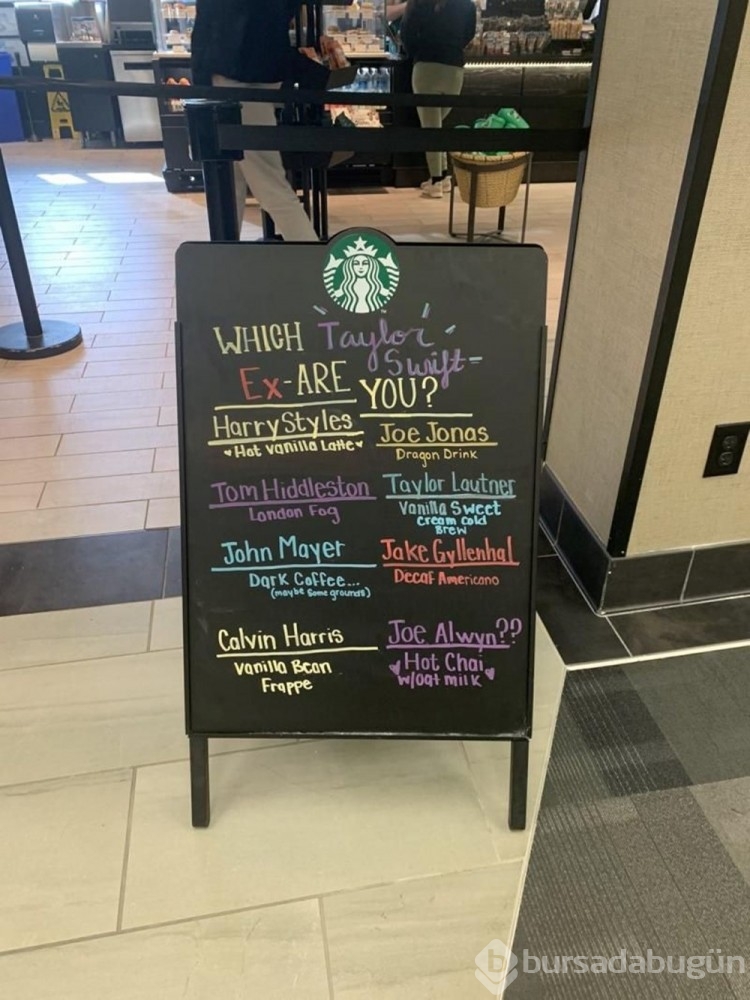 WHICH Taylor Swift
Ex-ARE YOU?
Harry Styles
Hot Vanilla Latte
Joe Jonas
Dragon Drink
Tom Hiddleston
London Fog
Taylor Lautner
Vanilla Sweet
Cream Cold
Brew
John Mayer
Dark Coffee...
(maybe some grounds)
Jake Gyllenhal
Decaf Americano
Calvin Harris
Vanilla Bean
Frappe
Joe Alwyn??
Hot Chai
w/oat milk
b bursadabugün